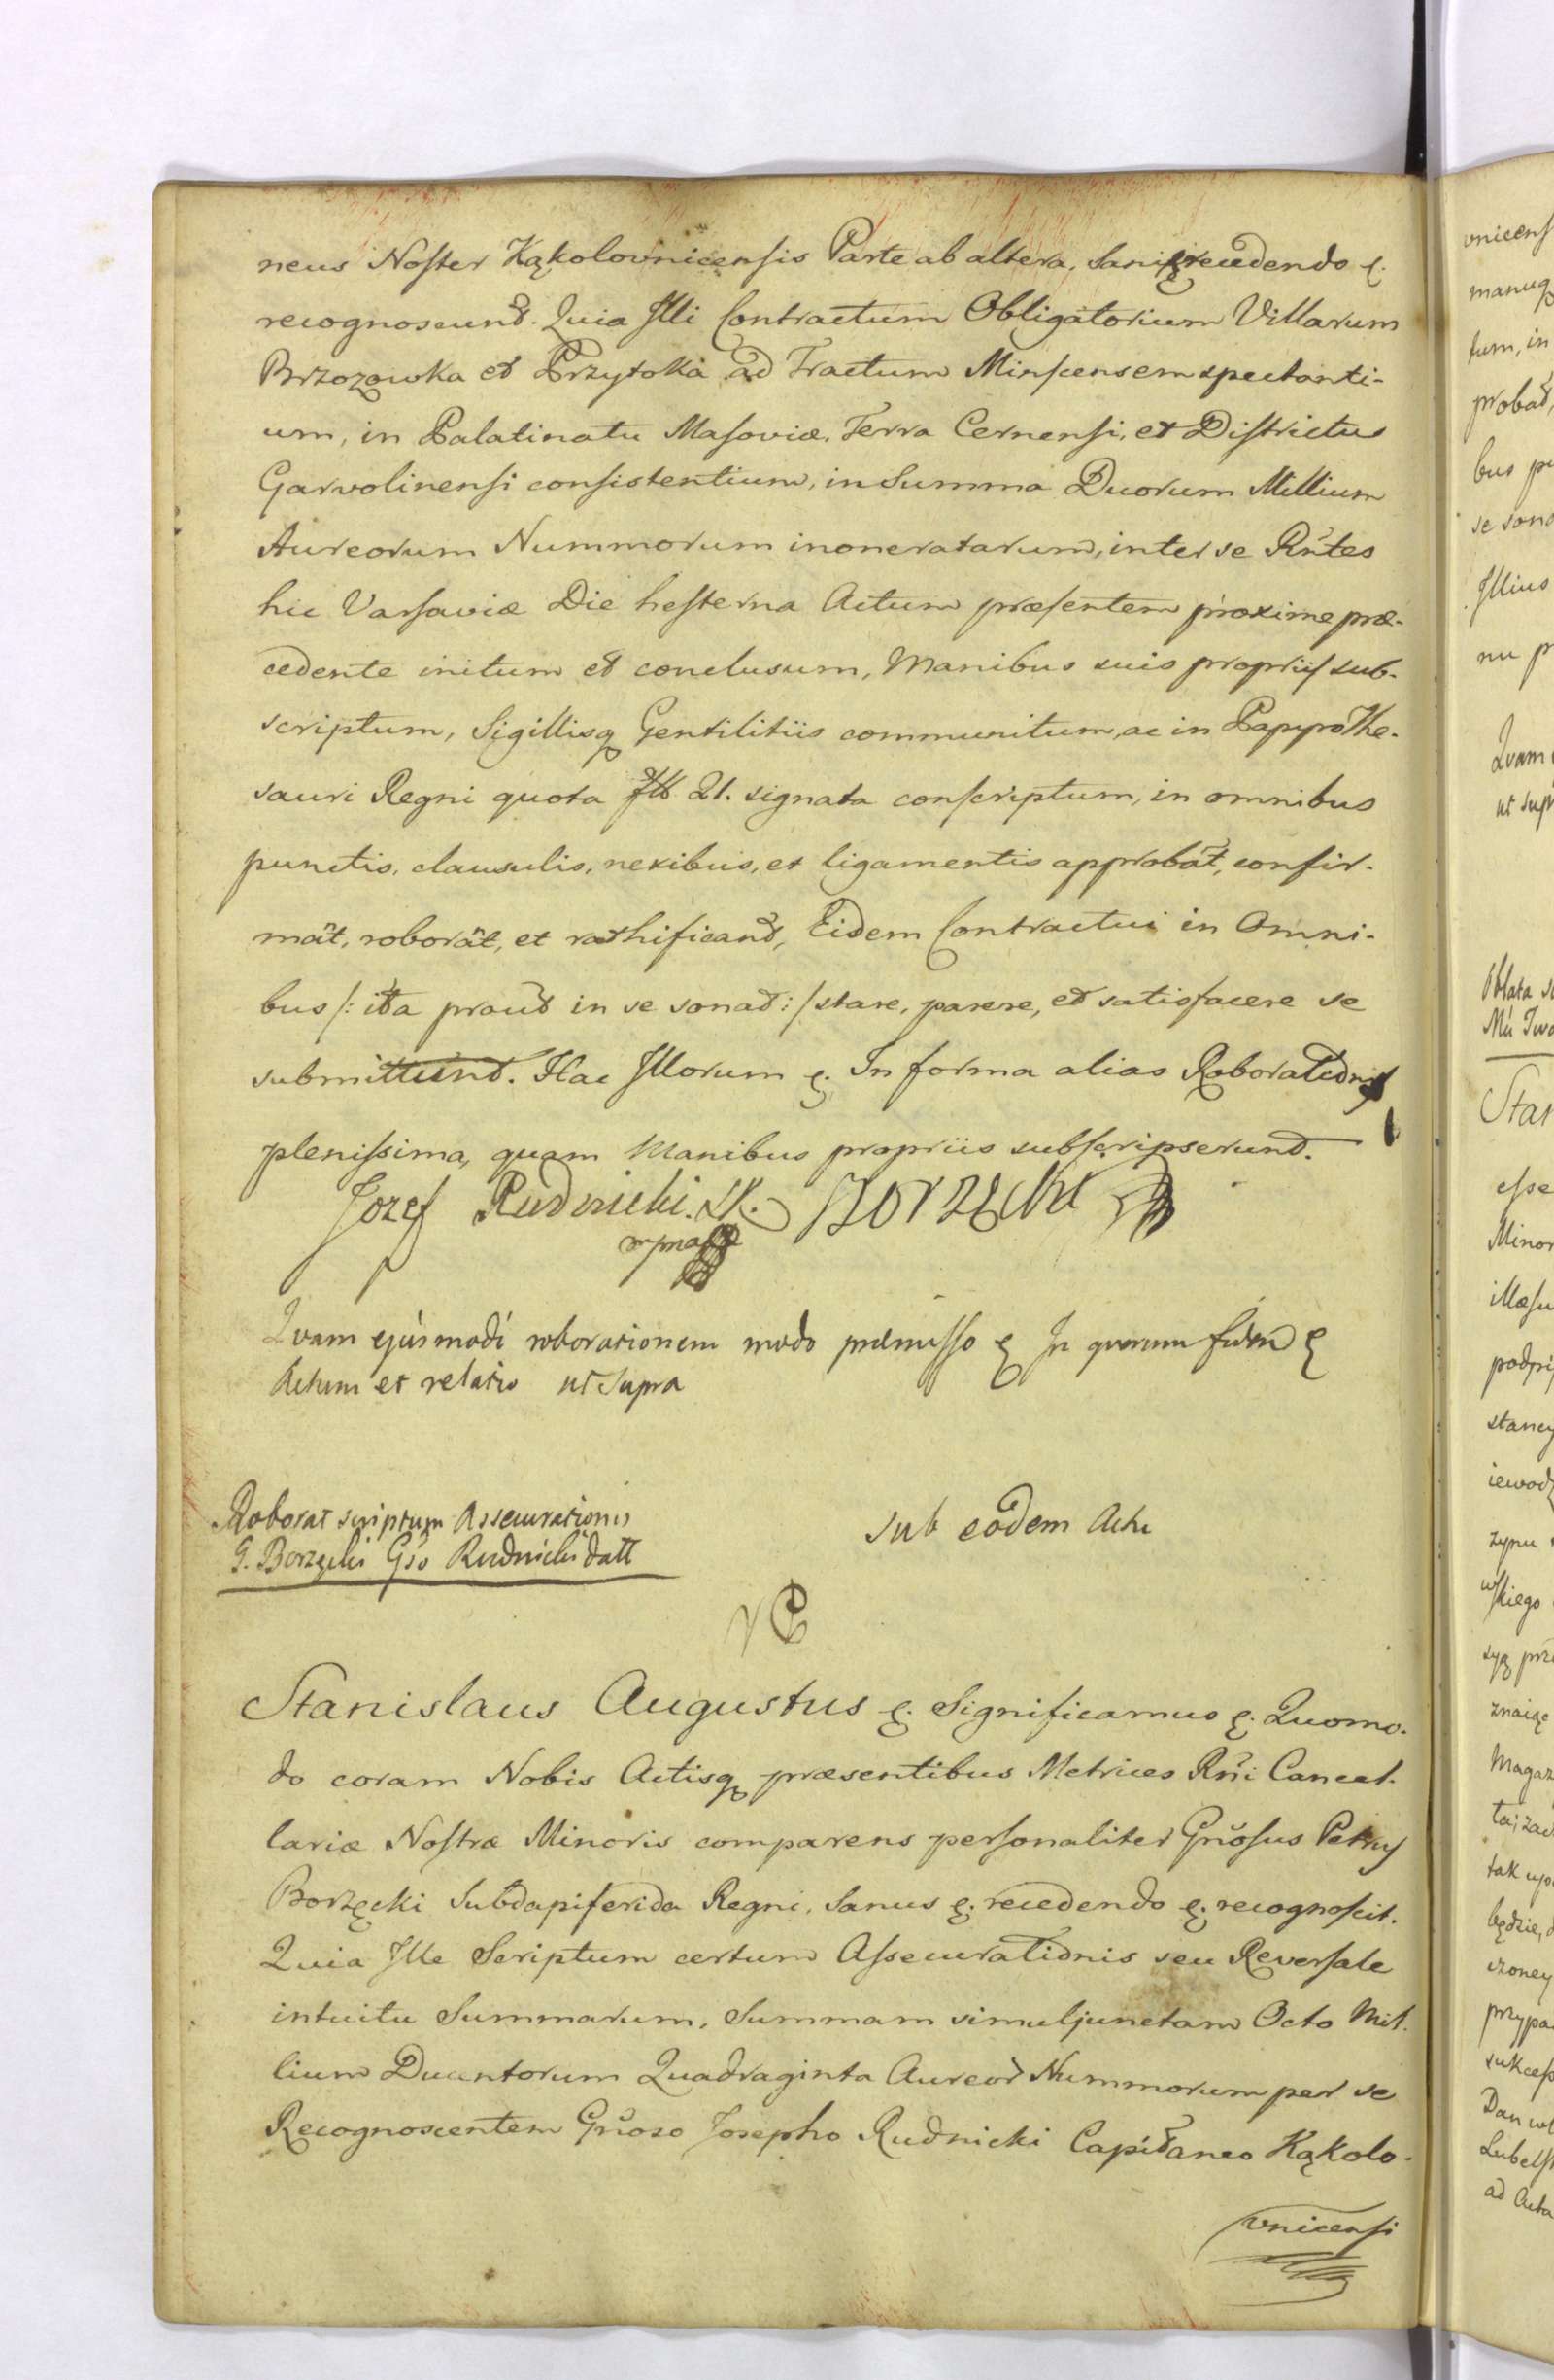 neus Noster Kąkolovnicensis Parte ab altera, Sani ꝛ. recedendo ꝛ.
recognoscunt. Quia Illi Contractum Obligatorium Villarum
Brzozowka et Przytoka ad Tractum Minscensem spectanti-
um, in Palatinatu Masoviæ, Terra Cernensi, et Districtu
Garvolinensi consistentium, in Summa Duorum Millium
Aureorum Nummorum inoneratarum, inter se Rntes
hic Varsaviæ Die hesterna Actum præsentem proxime præ-
cedente initum et conclusum, Manibus suis propriis sub-
scriptum, Sigillisq Gentilitiis communitum, ac in Papyro The-
sauri Regni quota 21. signata conscriptum, in omnibus
punctis, clausulis, nexibus, et ligamentis approbat, confir-
mât, roborât, et rathificant, Eidem Contractui in Omni-
bus /: ita prout in se sonat :/ stare, parere, et satisfacere se
submittunt. Hac Illorum ꝛ. In forma alias Roborationis
plenissima, quam Manibus propriis subscripserunt.
Jozef Rudnicki. SK. Borzęcki
mpma
Qvam ejúsmodi roborationem modo præmisso ꝛ In quorum fidem ꝛ
Actum et relatio ut Supra
Roborat scriptum Assecurationis
G. Borzęcki Gso Rudnicki datt
Sub eodem Actu
Stanislaus Augustus ꝛ. Significamus ꝛ. Quomo-
do coram Nobis Actisq præsentibus Metrices Rni Cancel-
lariæ Nostræ Minoris comparens personaliter Gnosus Petrus
Borzęcki Subdapiferida Regni, Sanus ꝛ. recedendo ꝛ. recognoscit.
Quia Ille Scriptum certum Assecurationis seu Reversale
intuitu Summarum, Summam simul junctam Octo Mil-
lium Ducentorum Quadraginta Aureor Nummorum per se
Recognoscentem Gnoso Josepho Rudnicki Capitaneo Kąkolo-
vnicensi
vnicens
manuq
tum, in
probat,
bus
se sona
Illius
nu
Qvam
ut Sup
Oblata
Stan
esse
Minor
illæsu
stancy
iewodz
zynu
wskiego
syą prz
znaiąc
Magaz
tak
będzie,
czoney
przypa
sukcess
Dan
Lubelsk
ad Acta